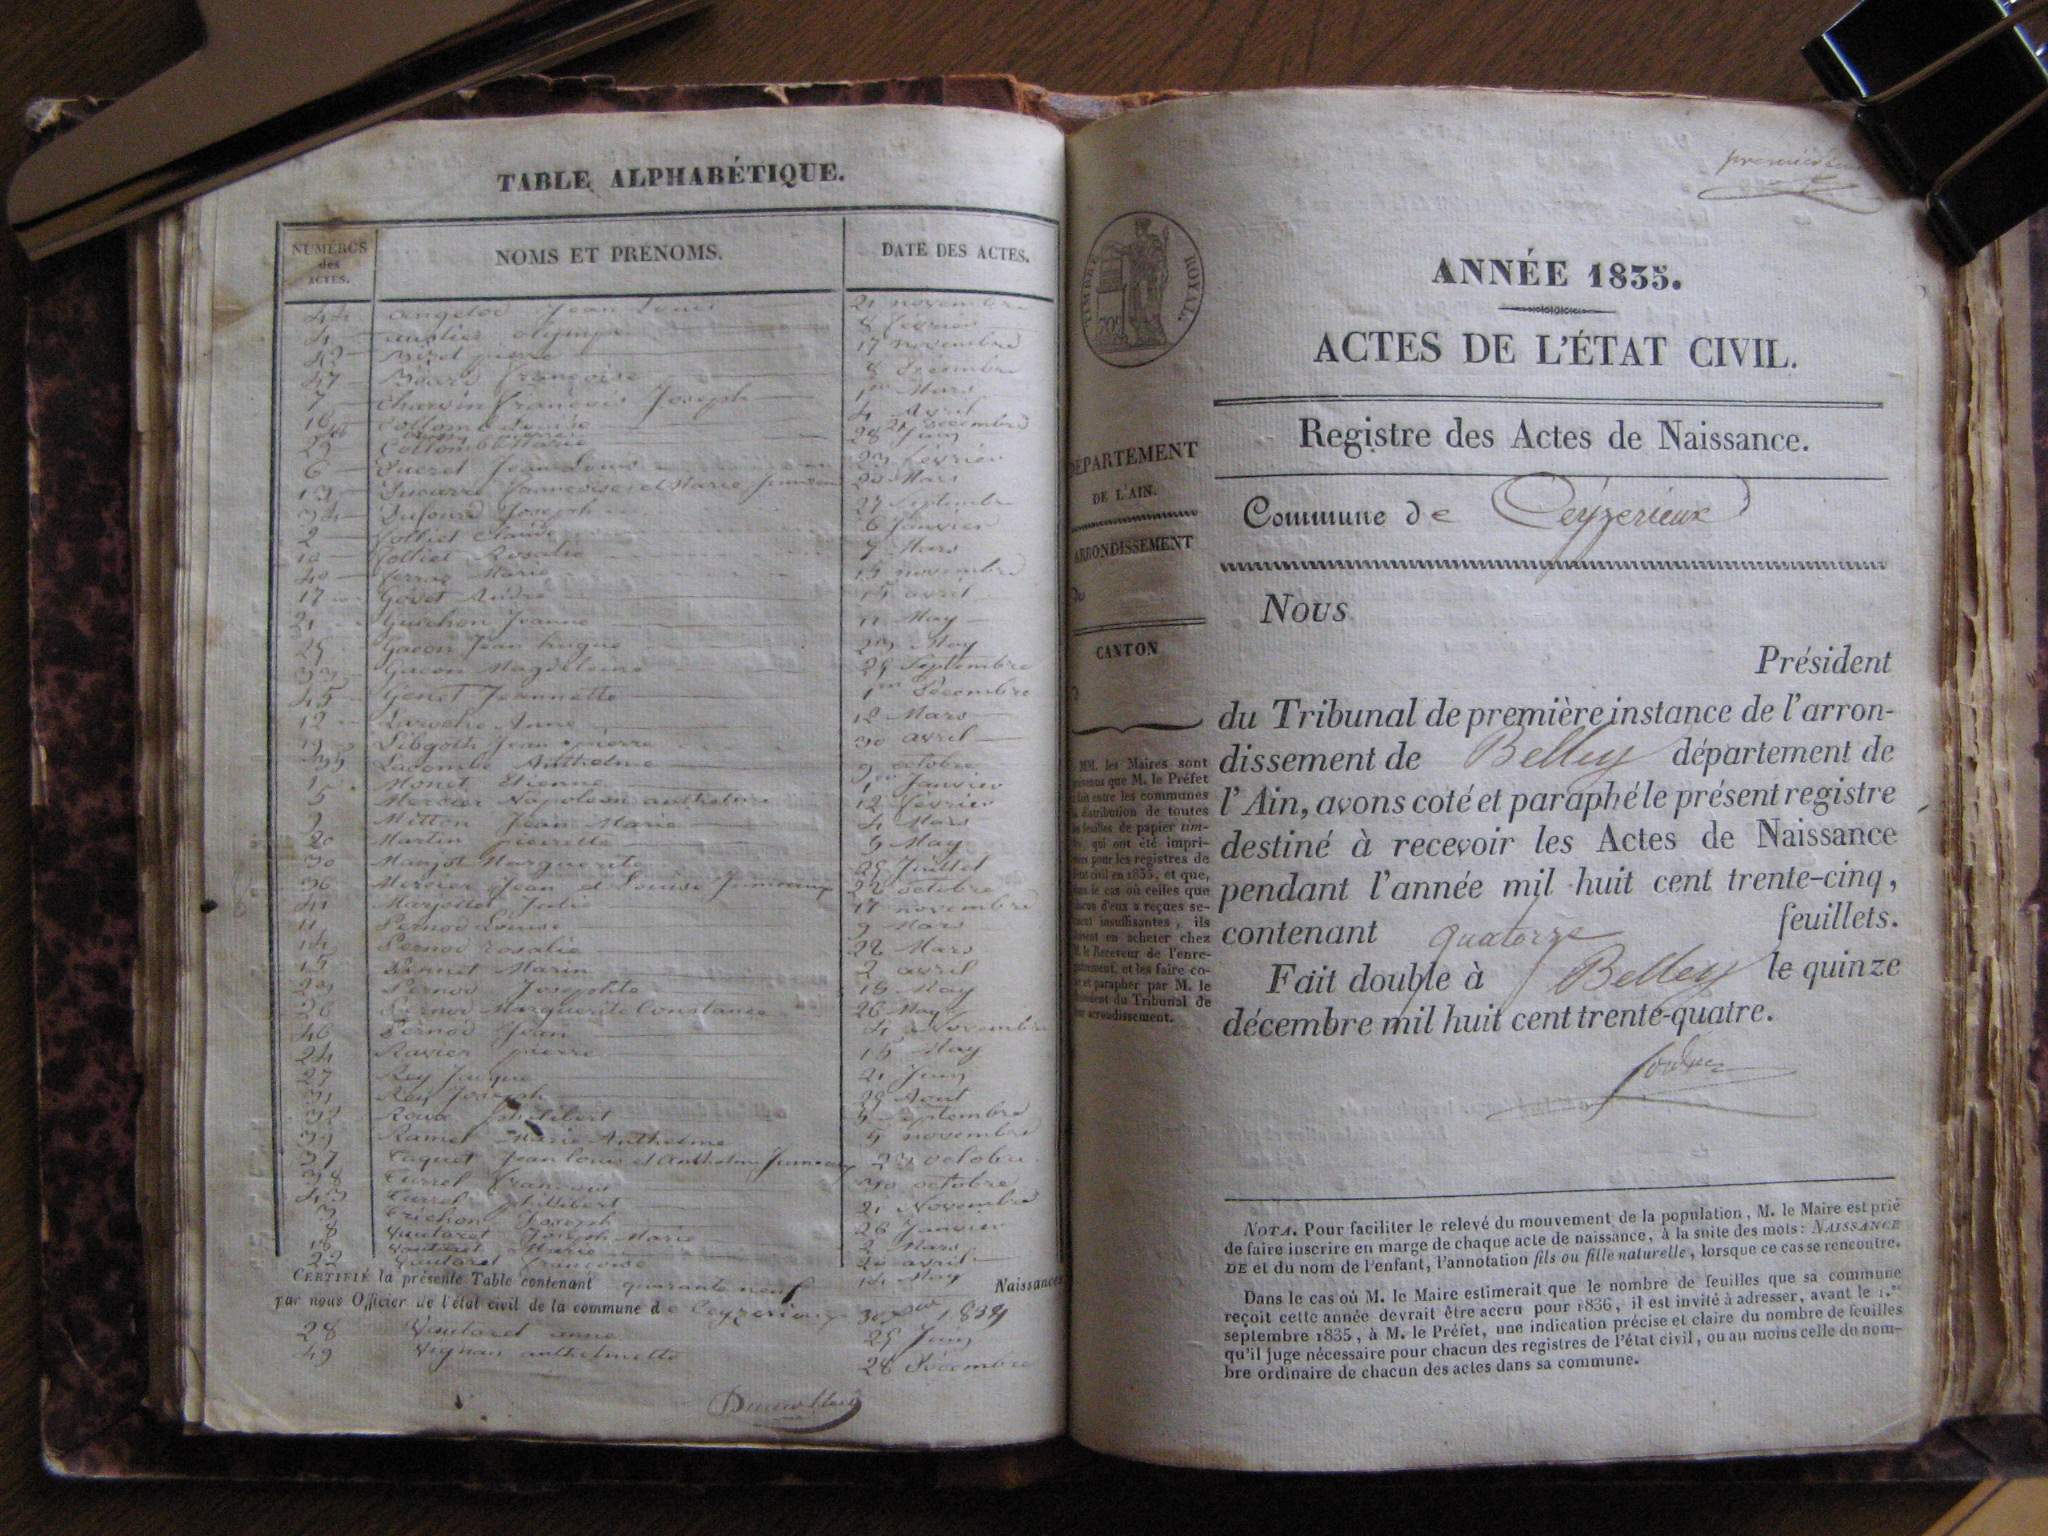 TABLE ALPHABÉTIQUE.
NUMÉROS
des
ACTES.
NOMS ET PRÉNOMS.
DATE DES ACTES.
44 Jean Louis 21 novembre
4 olympe 8 février
42 Bizet pierre 17 novembre
47 françoise 8 Décembre
7 Charvin françois Joseph 1er Mars
16 Collomb Louise 4 Avril
21 Décembre
Collomb Marie 28 Juin
6 Ducret Jean Louis 23 février
13 Françoise et Marie 20 Mars
34 Dufour Joseph 27 Septembre
2 Jolliet Claude 6 Janvier
10 Jolliet Rosalie 7 Mars
40 Marie 15 novembre
17 André 15 avril
21 Guichon Jeanne 11 May
25 Gacon Jean 23 May
33 Gacon Magdeleine 25 Septembre
45 Genet Jeannette 1er Décembre
12 Laroche Anne 12 Mars
19 Jean pierre 30 avril
35 Lacombe Anthelme 9 octobre
1 Monet Etienne 1er Janvier
5 Mercier Napoléon anthelme 12 février
9 Mitton Jean Marie 4 Mars
20 Martin pierrette 9 May
30 Marguerite 25 Juillet
36 Mercier Jean et Louise Jumeaux 22 octobre
41 Marjollet Julie 17 novembre
11 Pernod Louise 9 Mars
14 Pernod rosalie 22 Mars
15 Marin 2 avril
23 Pernod 18 May
26 Pernod Marguerite Constance 26 May
46 Pernod Jean 4 Novembre
24 Ravier pierre 15 May
27 Rey Jacque 21 Juin
31 Rey Joseph 29 Aout
32 Roux philibert 5 Septembre
39 Ramel Marie Anthelme 5 novembre
37 Taquet Jean louis et Anthelme Jumeaux 23 octobre
38 Turrel françois 30 octobre
43 Turrel philibert 21 Novembre
3 Trichon Joseph 26 Janvier
8 Vautaret Joseph Marie 2 Mars
18 Vautaret Marie 20 avril
22 Vautaret françoise 14 May
CERTIFIÉ la présente Table contenant quarante neuf Naissances
par nous Officier de l'état civil de la commune de Ceyzerieux 1834
28 Vautaret anne 25 Juin
49 Vignan anthelmette 28 Décembre
TIMBRE ROYAL.
ANNÉE 1835.
ACTES DE L'ÉTAT CIVIL.
Registre des Actes de Naissance.
DÉPARTEMENT
DE L'AIN.
ARRONDISSEMENT
CANTON
MM. les Maires sont
que M. le Préfet
entre les communes
distribution de toutes
feuilles de papier tim-
qui ont été impri-
pour les registres de
civil en 1835, et que,
le cas où celles que
d'eux a reçues se-
insuffisantes, ils
en acheter chez
le Receveur de l'enre-
et les faire co-
et parapher par M. le
du Tribunal de
arrondissement.
Commune de Ceyzerieux
Nous
Président
du Tribunal de première instance de l'arron-
dissement de Belley département de
l'Ain, avons coté et paraphé le présent registre
destiné à recevoir les Actes de Naissance
pendant l'année mil huit cent trente-cinq,
contenant quatorze feuillets.
Fait double à Belley le quinze
décembre mil huit cent trente-quatre.
NOTA. Pour faciliter le relevé du mouvement de la population, M. le Maire est prié
de faire inscrire en marge de chaque acte de naissance, à la suite des mots: NAISSANCE
DE et du nom de l'enfant, l'annotation fils ou fille naturelle, lorsque ce cas se rencontre.
Dans le cas où M. le Maire estimerait que le nombre de feuilles que sa commune
reçoit cette année devrait être accru pour 1836, il est invité à adresser, avant le 1.er
septembre 1835, à M. le Préfet, une indication précise et claire du nombre de feuilles
qu'il juge nécessaire pour chacun des registres de l'état civil, ou au moins celle du nom-
bre ordinaire de chacun des actes dans sa commune.